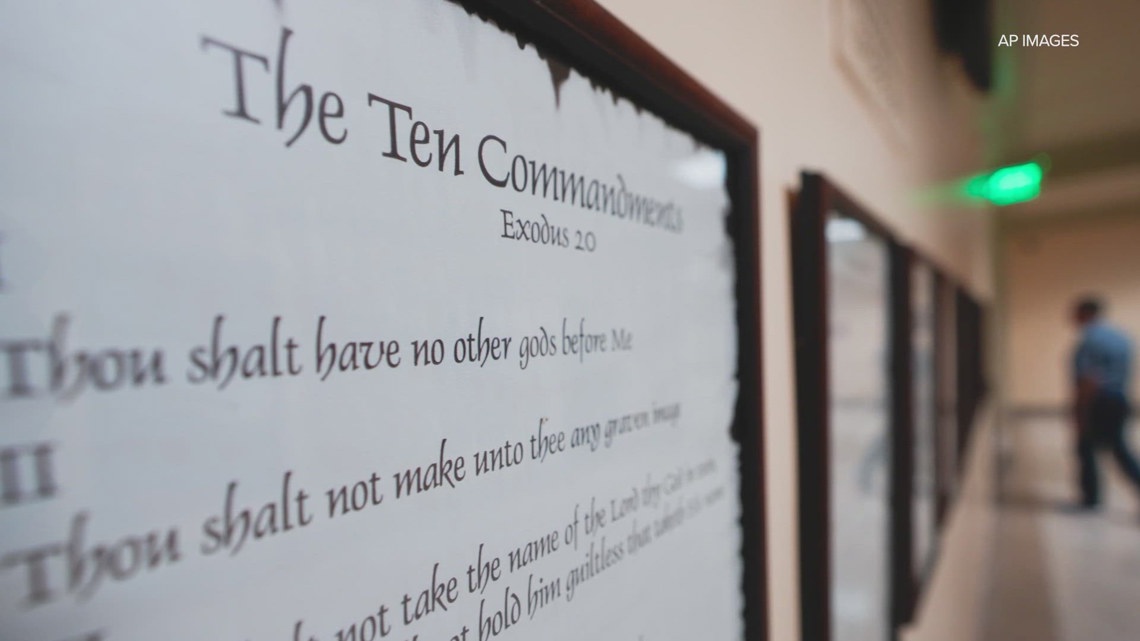 AP IMAGES
The Ten Commandments
Exodus 20
I
Thou shalt have no other gods before Me
II
Thou shalt not make unto thee any graven image
not take the name of the Lord thy God in vain,
hold him guiltless that taketh his name